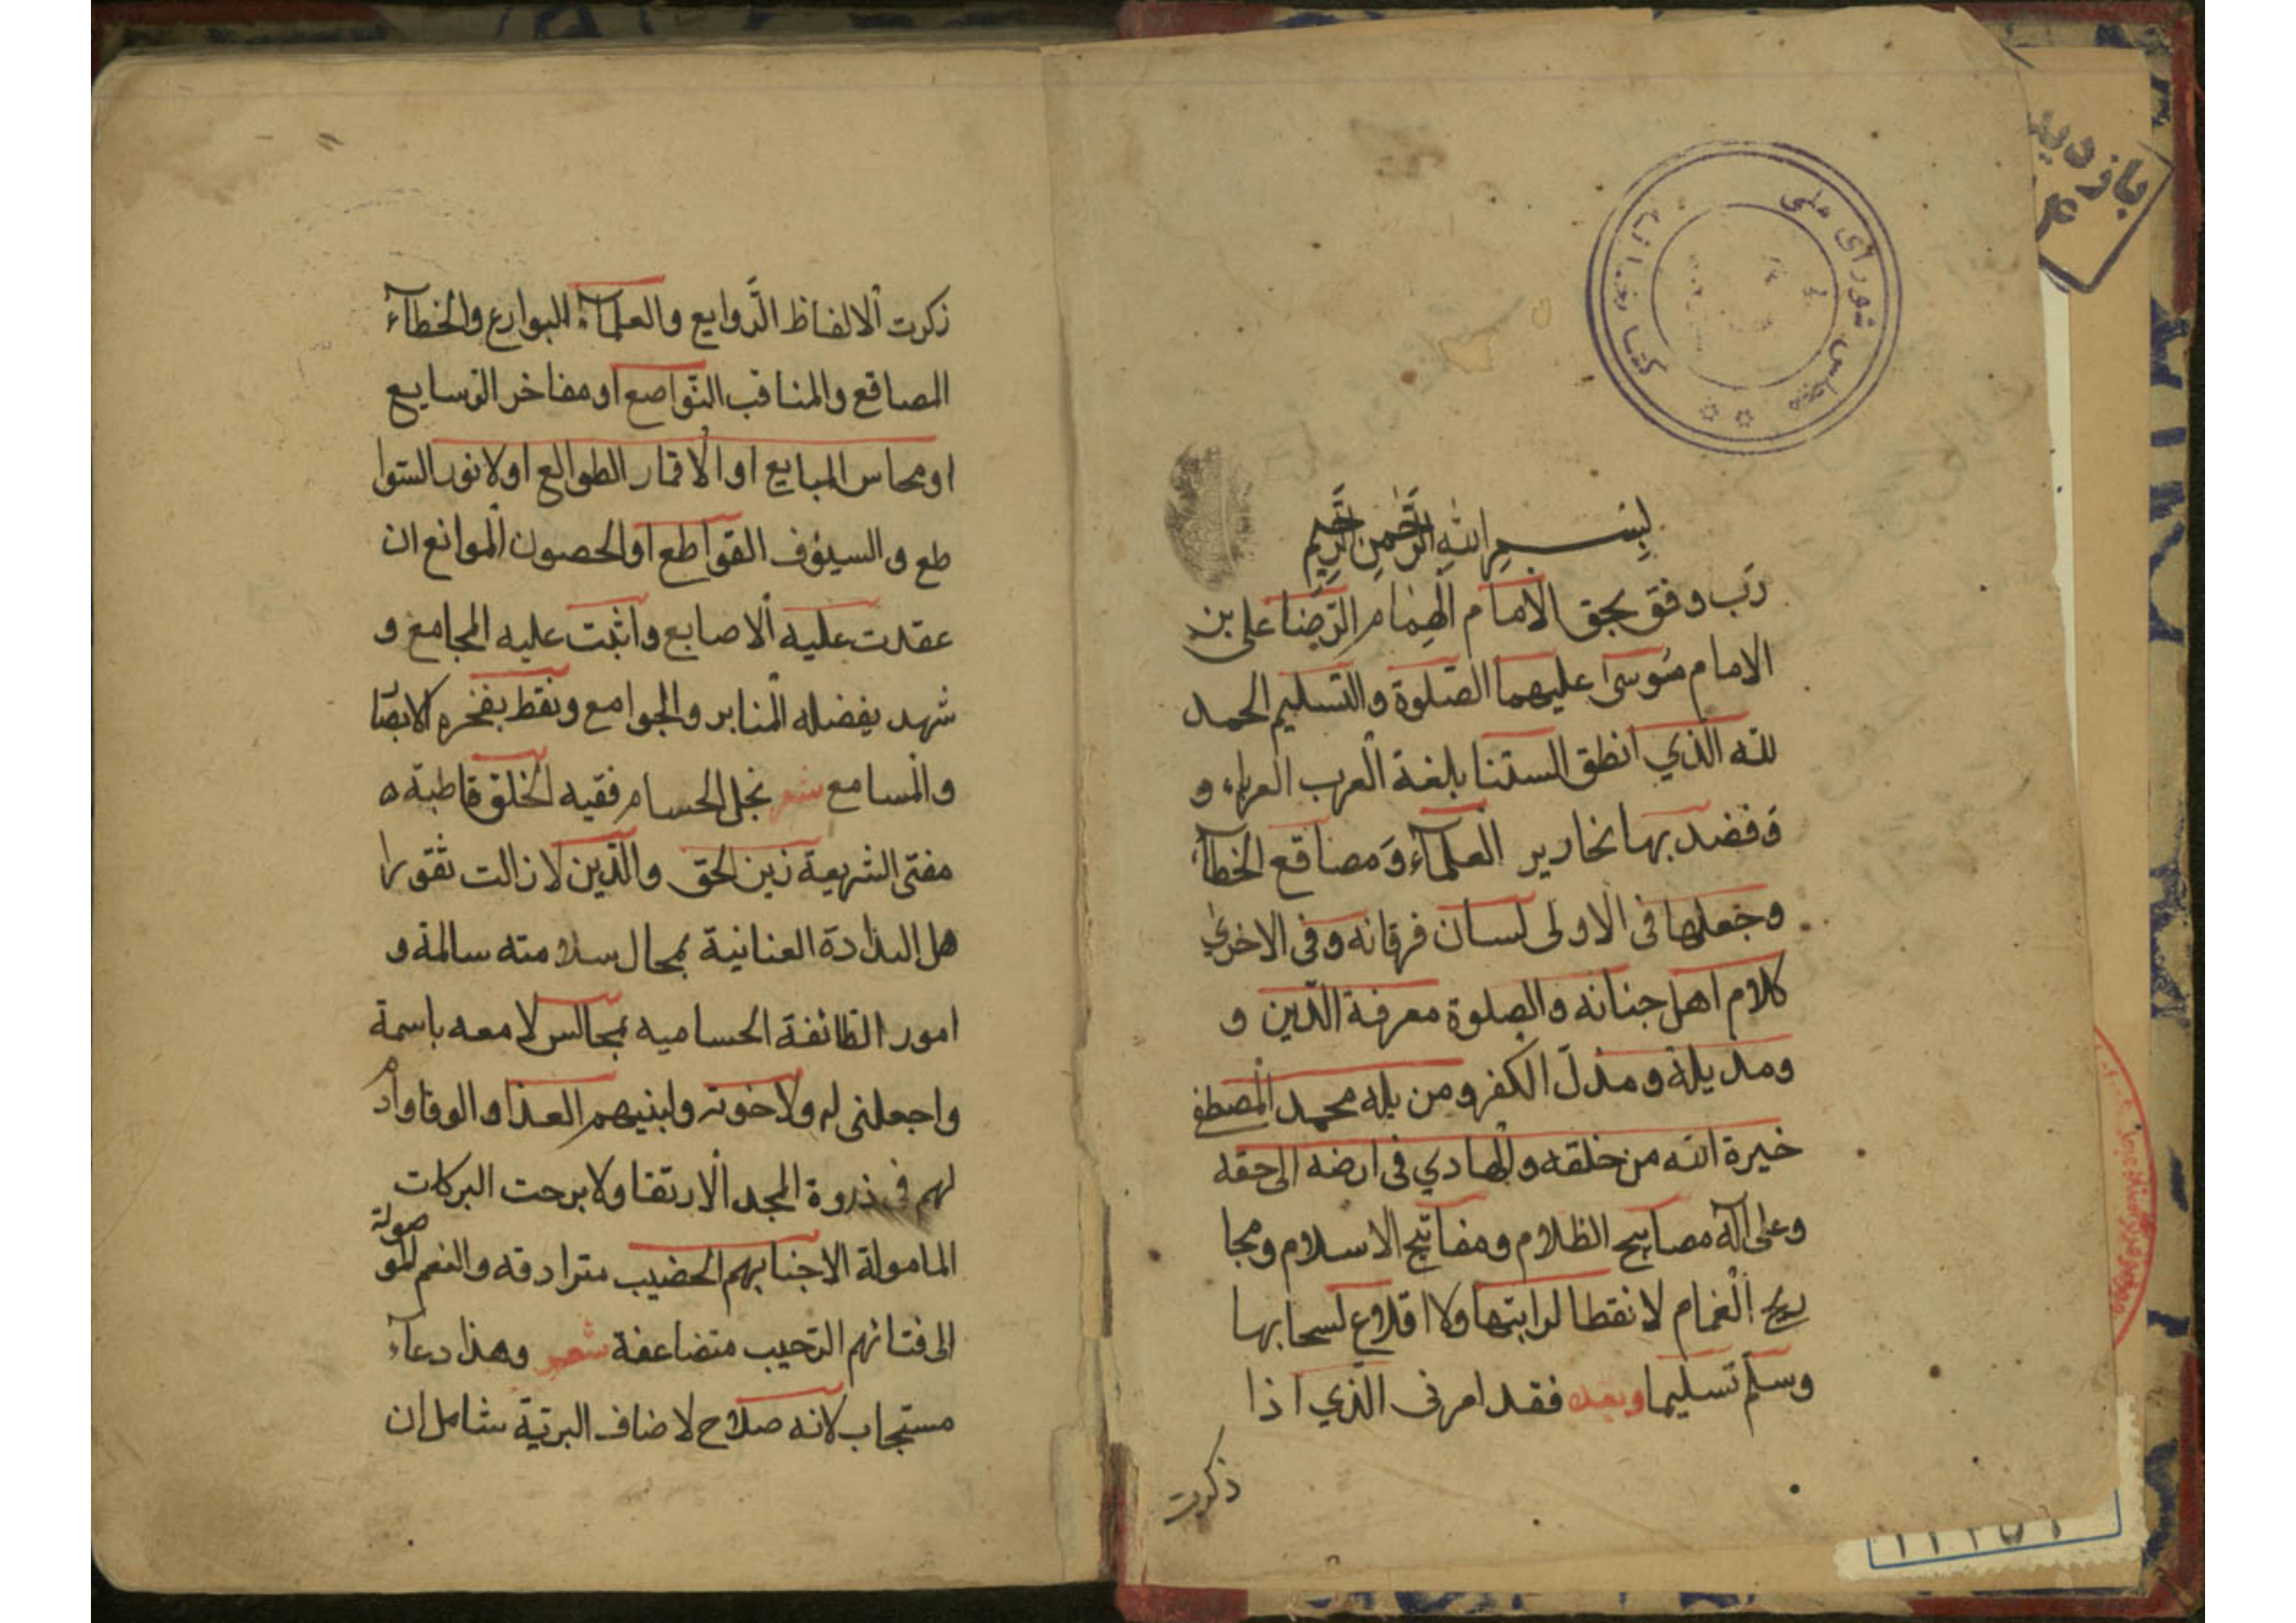 بازدید
كتابخانه
مجلس شورای ملی
بِسْــمِ اللهِ الرَّحْمنِ الرَّحِيمِ
رَب وفق بحق الامام الهمام الرّضا على بن
الامام موسى عليهما الصّلوة والتسليم الحمد
لله الّذي انطق السنتنا بلغة العرب العرباء و
وَفضد بها نحارير العلمآء وَمصاقع الخطبآء
وجعلها فى الاولى لسان فرقانه وفى الاخرى
كلام اهل جنانه والصلوة معرفة الدّين و
ومديله ومذلّ الكفر ومن يله محمد المصطفى
خيرة الله من خلقه والهادي فى ارضه الى حقه
وعلى اله مصابيح الظلام ومفاتيح الاسلام ومجا
ريح الغمام لا نقطا لرابتها ولا اقلاع لسحابها
وسلّم تسليما وبعد فقد امرنى الّذي اذا
ذكرت
ذكرت الالفاظ الرّوايع والعلمآء البوارع والخطبآء
المصاقع والمناقب النّواصع او مفاخر الوسايع
او محاس المبايع او الاقمار الطوالع او لانور السّوا
طع و السيوف القواطع او الحصون الموانع ان
عقدت عليه الاصابع واثبت عليه المجامع و
شهد بفضله المنابر والجوامع ونقط بفخره الابصا
والمسامع شعر نجل الحسام فقيه الخلق قاطبة ه
مفتى الشريعة زين الحق والدّين لا زالت ثقورا
هل البلادة العنانية بمحال سلامته سالمة و
امور الطائفة الحساميه بمجالس لامعه باسمة
واجعلنى له ولاخوته ولبنيهم العذا والوفا وادم
لهم فى ذروة المجد الارتقا ولا برحت البركات
المامولة الاجنابهم الحضيب مترادقه والنعم المو
صولة
الى فتانهم الرّحيب متضاعفة شعر وهذا دعآء
مستجاب لانه صلاح لاضاف البريّة شامل ان